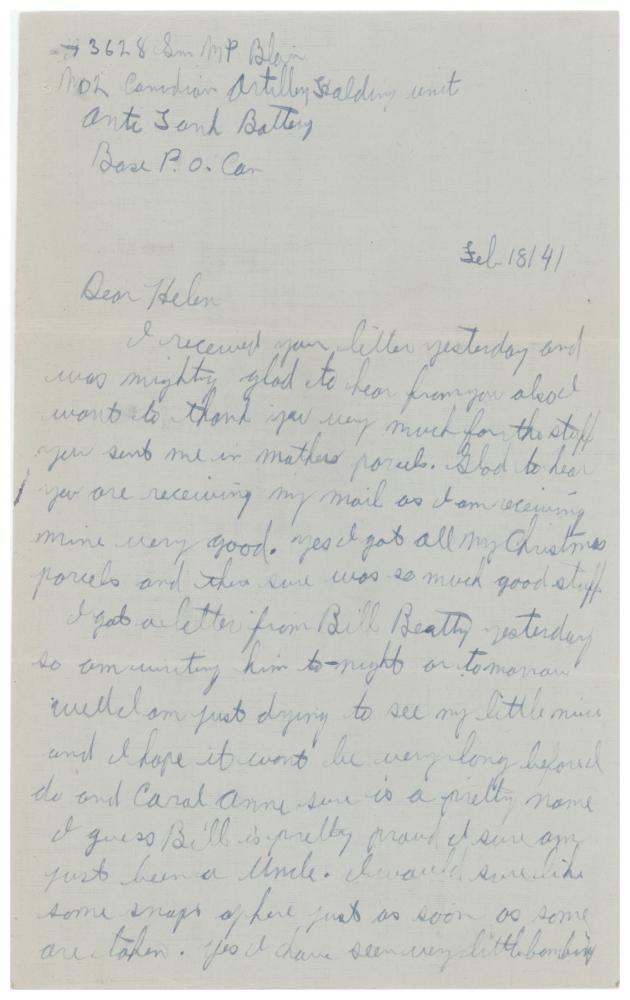 3628 Gnr M P Blain
No 2 Canadian Artillery Holding unit
Anti Tank Battery
Base P. O. Can
Feb 18/41
Dear Helen
I received your letter yesterday and
was mighty glad to hear from you also I
want to thank you very much for the stuff
you sent me in mothers parcels. Glad to hear
you are receiving my mail as I am receiving
mine very good. yes I got all my Christmas
parcels and there sure was so much good stuff
I got a letter from Bill Beatty yesterday
so am writing him to-night or tomorrow
well I am just dying to see my little niece
and I hope it wont be very long before I
do and Carol Anne sure is a pretty name
I guess Bill is pretty proud I sure am
just been a Uncle. I would sure like
some snaps of her just as soon as some
are taken. Yes I have seen very little bombing